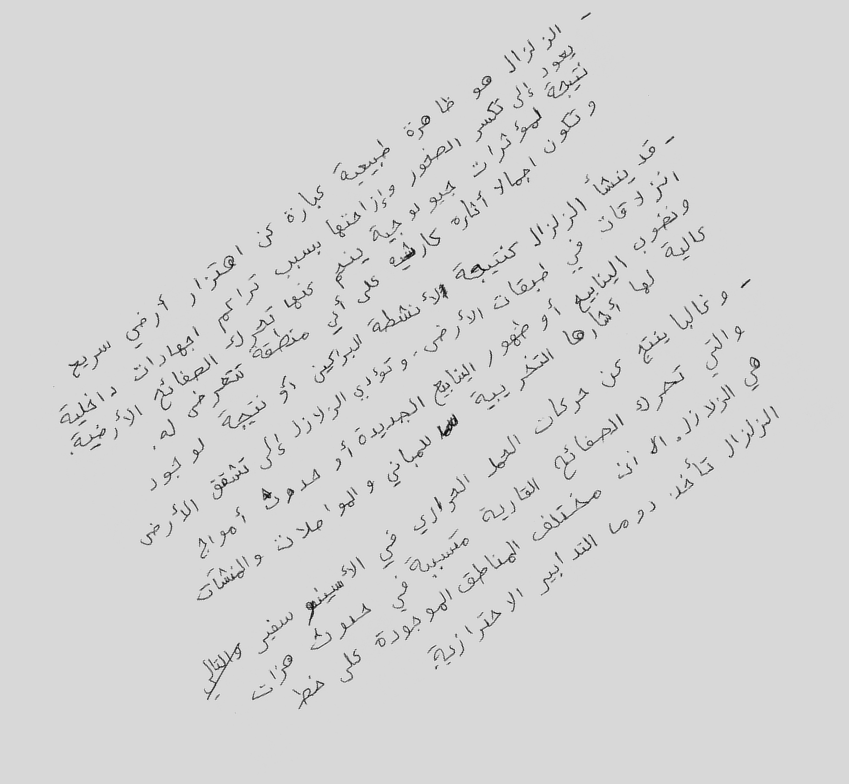 - الزلزال هو ظاهرة طبيعية عبارة عن اهتزاز أرضي سريع
يعود إلى تكسر الصخور وإزاحتها بسبب تراكم اجهادات داخلية
نتيجة لمؤثرات جيولوجية ينجم عنها تحرك الصفائح الأرضية.
وتكون اجمالا أثاره كارثية على أي منطقة تتعرض له.
- قد ينشأ الزلزال كنتيجة لأنشطة البراكين أو نتيجة لوجود
انزلاقات في طبقات الأرض. وتؤدي الزلازل إلى تشقق الأرض
ونضوب الينابيع أو ظهور الينابيع الجديدة أو حدوث أمواج
عالية لها أثارها التخريبية للمباني والمواصلات والمنشآت
- وغالبا ينتج عن حركات الحمل الحراري في الأسينوسفير
والتي تحرك الصفائح القارية متسببة في حدوث هزات
هي الزلازل. الا ان مختلف المناطق الموجودة على خط
الزلزال تأخذ دوما التدابير الاحترازية.